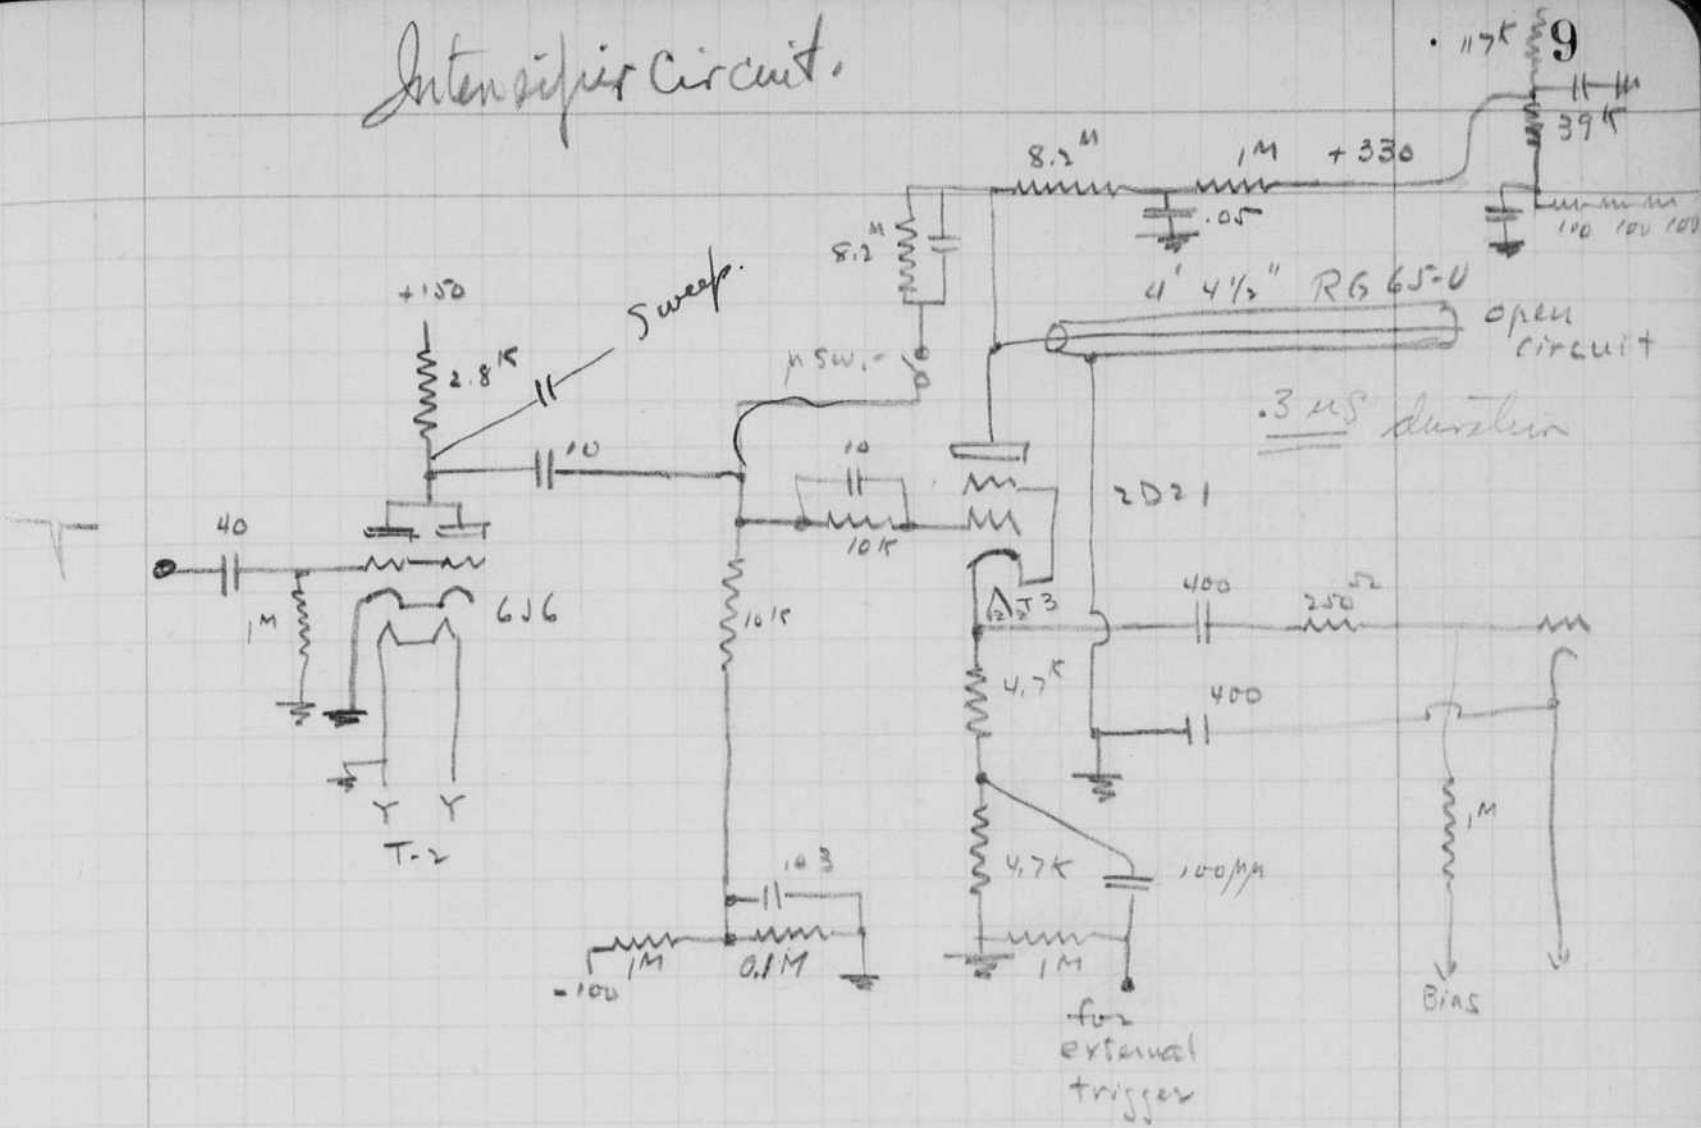 9
Intensifier Circuit.
117K
39K
8.2M
1M
+330
.05
100 100 100
8.2M
4' 4½" RG 65-U
open
circuit
+150
Sweep.
2.8K
μ sw.
.3 μS duration
10
10
2D21
40
10K
1M
6J6
10K
T3
400
250Ω
4.7K
400
T-2
1M
.103
4.7K
100μμ
-100
1M
0.1M
1M
Bias
for
external
trigger